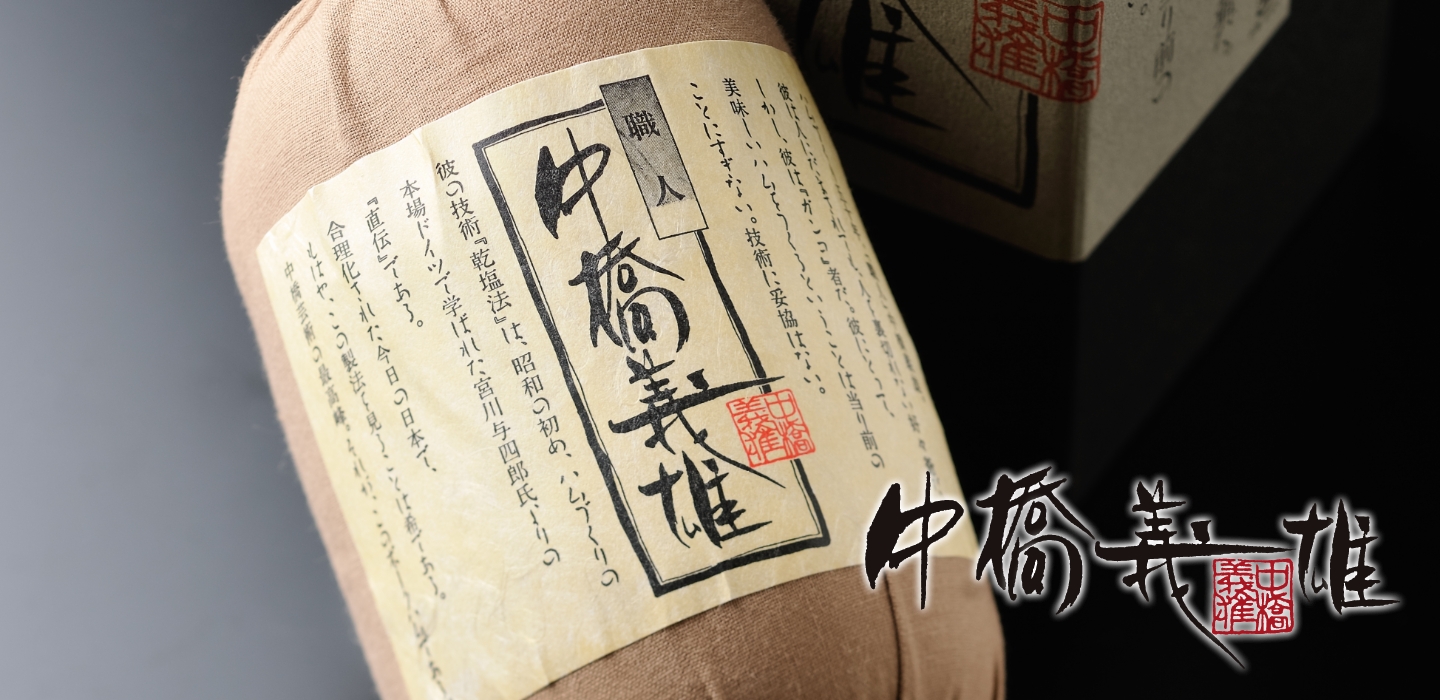 職人
中橋義雄
中橋
義雄
彼は『ガンコ』者だ。彼にとって
しかし、
美味しいハムをつくるということは当り前の
ことにすぎない。技術に妥協はない。
彼の技術『乾塩法』は、昭和の初め、ハムづくりの
本場ドイツで学ばれた宮川与四郎氏よりの
『直伝』である。
合理化された今日の日本で、
もはや、この製法を見ることは稀である。
中橋芸術の最高峰。それが、この
中橋義雄
中橋
義雄